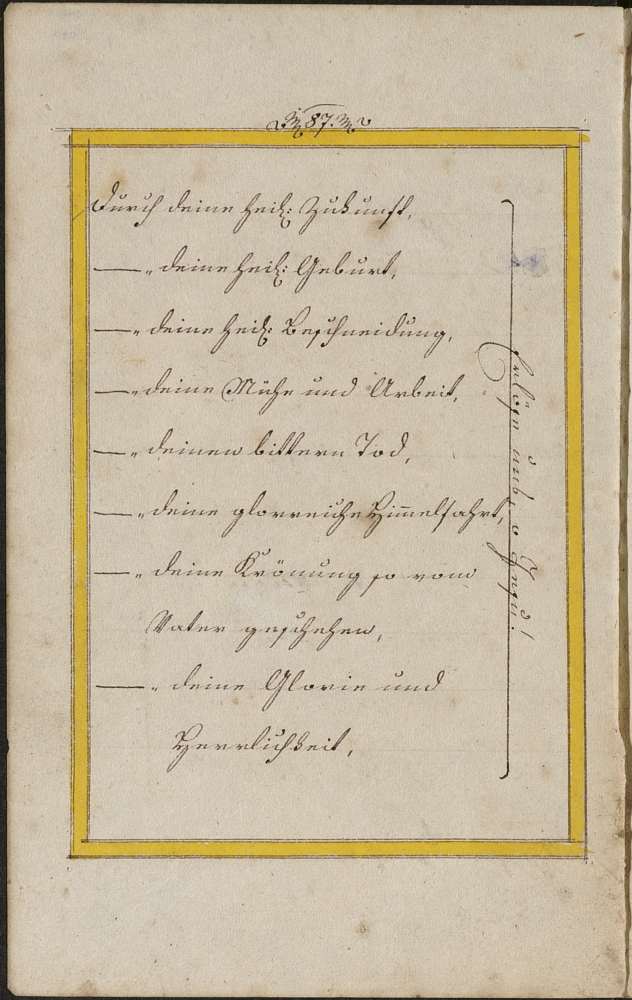 87.
Durch deine heil: Zukunft,
——„ deine heil: Geburt,
——„ deine heil: Beschneidung,
——„ deine Mühe und Arbeit,
——„ deinen bittern Tod,
——„ deine glorreiche Him̄elfahrt,
——„ deine Krönung so vom
Vater geschehen,
——„ deine Glorie und
Herrlichkeit,
Erlöse uns, o Jesu!